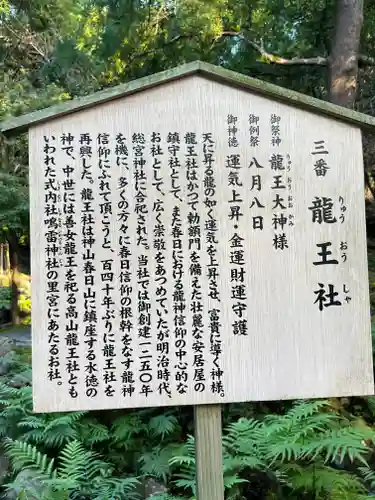 三番 龍王社
りゅう おう しゃ
御祭神 龍王大神様
りゅう おう おお かみ
御例祭 八月八日
御神徳 運気上昇・金運財運守護
天に昇る龍の如く運気を上昇させ、富貴に導く神様。
龍王社はかつて勅額門を備えた壮麗な安居屋の
鎮守社として、また春日における龍神信仰の中心的な
お社として、広く崇敬をあつめていたが明治時代、
総宮神社に合祀された。当社では御創建一二五〇年
を機に、多くの方々に春日信仰の根幹をなす龍神
信仰にふれて頂こうと、百四十年ぶりに龍王社を
再興した。龍王社は神山春日山に鎮座する水徳の
神で、中世には善女龍王を祀る高山龍王社とも
いわれた式内社鳴雷神社の里宮にあたるお社。